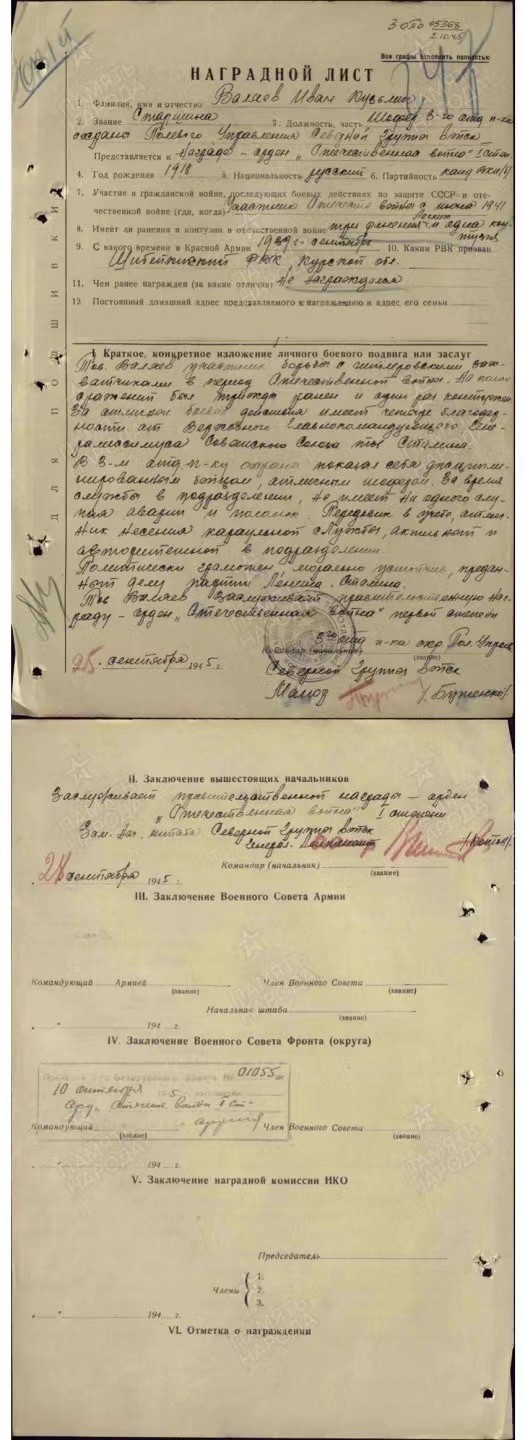 З ОПО 05368
2.10.45
Все графы заполнять полностью
НАГРАДНОЙ ЛИСТ
1. Фамилия, имя и отчество Валаев Иван Кузьмич
2. Звание Старшина 3. Должность, часть Шофер 3-го отд. п-ка
охраны Полевого Управления Северной Группы Войск
Представляется к Награде - орден „Отечественная война" I степ.
4. Год рождения 1918 5. Национальность русский 6. Партийность канд. ВКП(б)
7. Участие в гражданской войне, последующих боевых действиях по защите СССР и оте-
чественной войне (где, когда) Участник Отечественной войны с июня 1941
8. Имеет ли ранения и контузии в отечественной войне три ранения и одна кон-
тузия
9. С какого времени в Красной Армии 1939 г. сентябрь 10. Каким РВК призван
РВК Курской обл.
11. Чем ранее награжден (за какие отличия) Не награждался
12. Постоянный домашний адрес представляемого к награждению и адрес его семьи
Для подшивки
I. Краткое, конкретное изложение личного боевого подвига или заслуг
Тов. Валаев участник борьбы с гитлеровскими зах-
ватчиками в период Отечественной войны. На полях
сражений был трижды ранен и один раз контужен.
За отличные боевые действия имеет четыре благодар-
ности от Верховного Главнокомандующего Гене-
ралиссимуса Советского Союза тов. Сталина.
В 3-м отд. п-ку охраны показал себя дисципли-
нированным бойцом, отличным шофером. За время
службы в подразделении, не имеет ни одного слу-
чая аварии и поломок. Передовик в учебе, отлич-
ник несения караульной службы, активный и
авторитетный в подразделении
Политически грамотен, морально устойчив, предан-
ный делу партии Ленина-Сталина.
Тов. Валаев заслуживает правительственную наг-
раду - орден „Отечественная война" первой степени
3го отд. п-ка охр. Пол. Управ.
Командир (начальник)
(звание)
25. сентября 1945 г.
Северной Группы войск
Майор
II. Заключение вышестоящих начальников
Заслуживает правительственной награды - орден
„Отечественная война" I степени
Зам. Нач. штаба Северной Группы войск
Генерал-
Командир (начальник)
(звание)
сентября 1945 г.
III. Заключение Военного Совета Армии
Командующий Армией Член Военного Совета
(звание) (звание)
Начальник штаба
(звание)
„ " 194 г.
IV. Заключение Военного Совета Фронта (округа)
Белорусского фронта № 01055
10 октября 5
орд. Отечест. войны I ст.
Командующий Член Военного Совета
(звание) (звание)
194 г.
V. Заключение наградной комиссии НКО
Председатель
Члены
1.
2.
3.
„ " 194 г.
VI. Отметка о награждении
ПАМЯТЬ НАРОДА